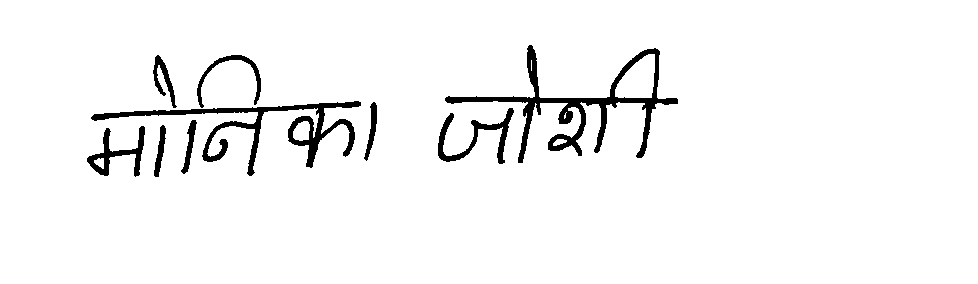 मोनिका जोशी